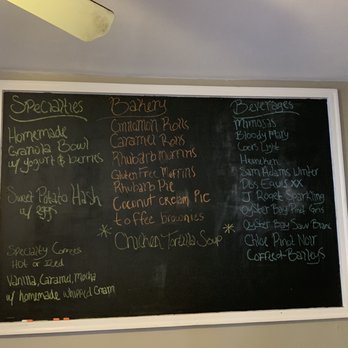 Specialties
Homemade
Granola Bowl
w/ yogurt & berries
Sweet Potato Hash
w/ eggs
Specialty Coffees
Hot or Iced
Vanilla, Caramel, Mocha
w/ homemade whipped cream
Bakery
Cinnamon Rolls
Caramel Rolls
Rhubarb Muffins
Gluten Free Muffins
Rhubarb Pie
Coconut Cream Pie
toffee brownies
* Chicken Tortilla Soup *
Beverages
Mimosas
Bloody Mary
Coors Light
Heineken
Sam Adams Winter
Dos Equis XX
J. Roget Sparkling
Oyster Bay Pinot Gris
Oyster Bay Sauv Blanc
Chloe Pinot Noir
Baileys